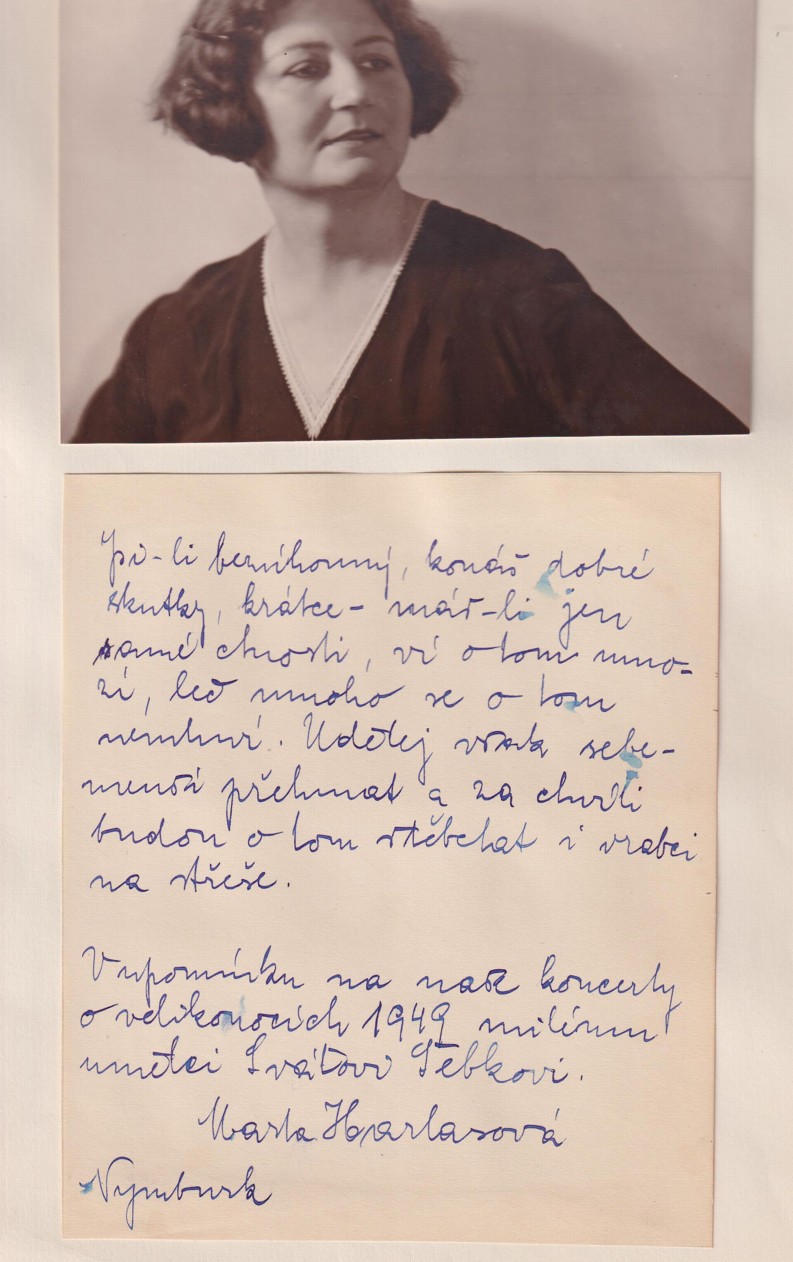 Jsi-li bezúhonný, konáš dobré
skutky, krátce - máš-li jen
samé ctnosti, ví o tom mno-
zí, leč mnoho se o tom
nemluví. Udělej však sebe-
menší přehmat a za chvíli
budou o tom štěbetat i vrabci
na střeše.
V upomínku na naše koncerty
o velikonocích 1949 milému
umělci Sváťovi Štěbkovi.
Marta Harlasová
Nymburk